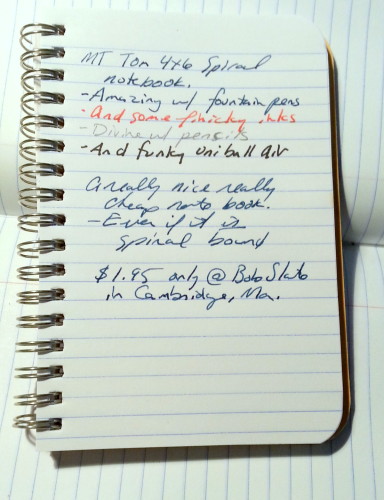 MT Tom 4x6 Spiral
notebook.
- Amazing w/ fountain pens
- And some finicky inks
- Divine w/ pencils
- And funky uniball air
A really nice really
cheap note book.
- Even if it is
spiral bound
$1.95 only @ Bob Slate
in Cambridge, Ma.